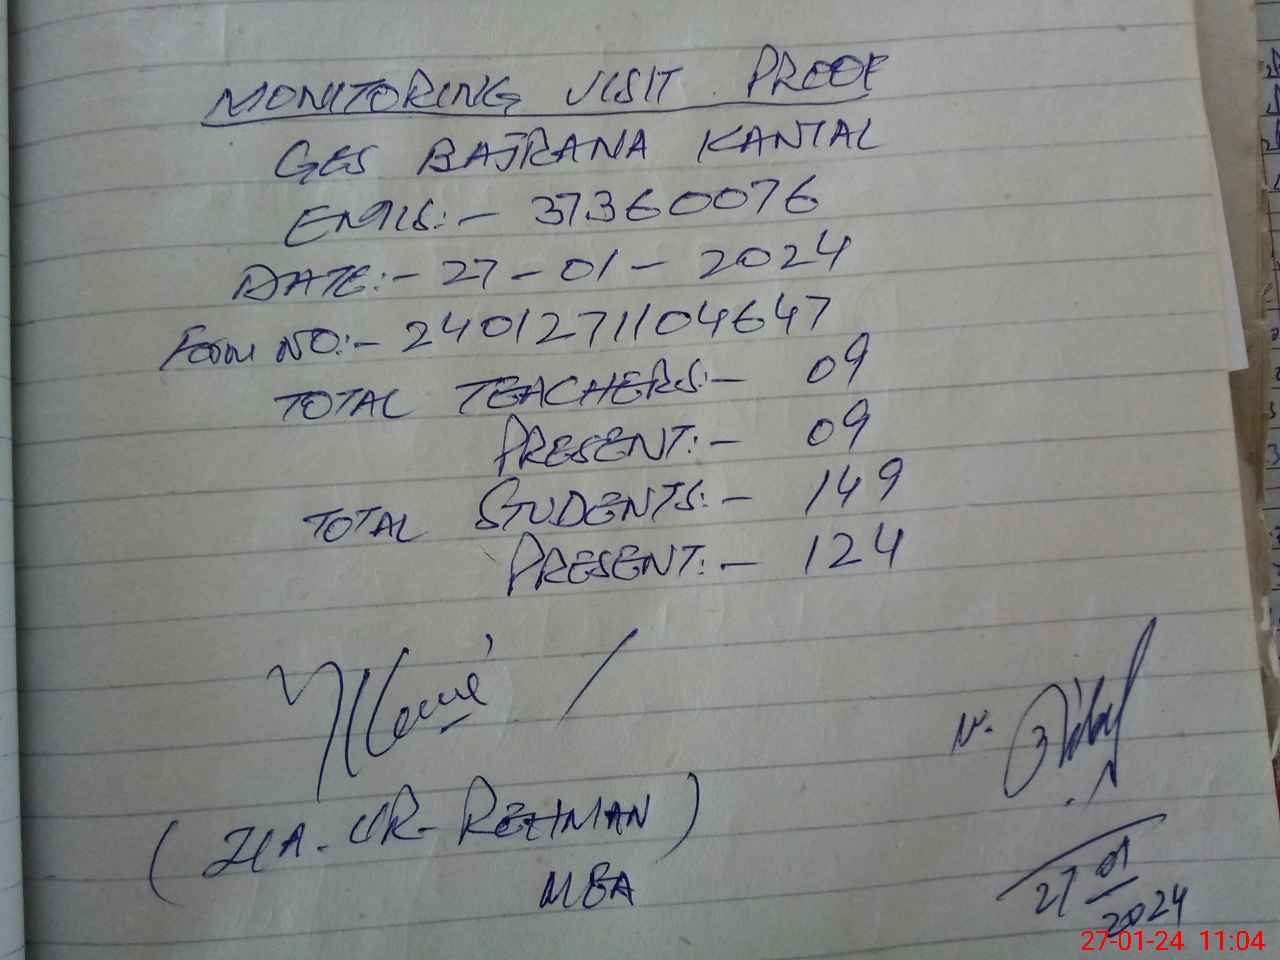 MONITORING VISIT PROOF
GES BAJRANA KANTAL
EMIS:- 37360076
DATE:- 27-01-2024
Form NO:- 2401271104647
TOTAL TEACHERS:- 09
PRESENT:- 09
TOTAL STUDENTS:- 149
PRESENT:- 124
(ZIA-UR-REHMAN)
MEA
27 01
2024
27-01-24 11:04